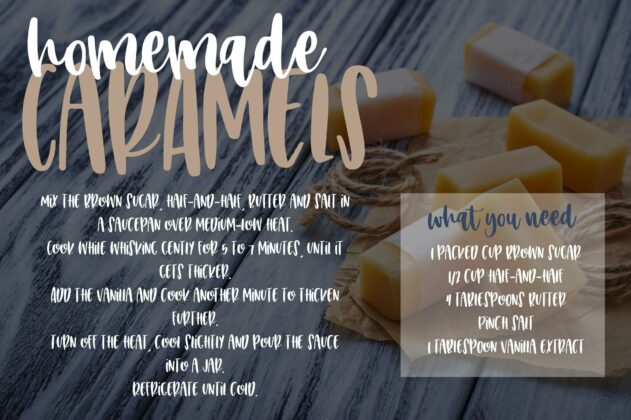 homemade
CARAMELS
MIX THE BROWN SUGAR, HALF-AND-HALF, BUTTER AND SALT IN
A SAUCEPAN OVER MEDIUM-LOW HEAT.
COOK WHILE WHISKING GENTLY FOR 5 TO 7 MINUTES, UNTIL IT
GETS THICKER.
ADD THE VANILLA AND COOK ANOTHER MINUTE TO THICKEN
FURTHER.
TURN OFF THE HEAT, COOL SLIGHTLY AND POUR THE SAUCE
INTO A JAR.
REFRIGERATE UNTIL COLD.
what you need
1 PACKED CUP BROWN SUGAR
1/2 CUP HALF-AND-HALF
4 TABLESPOONS BUTTER
PINCH SALT
1 TABLESPOON VANILLA EXTRACT